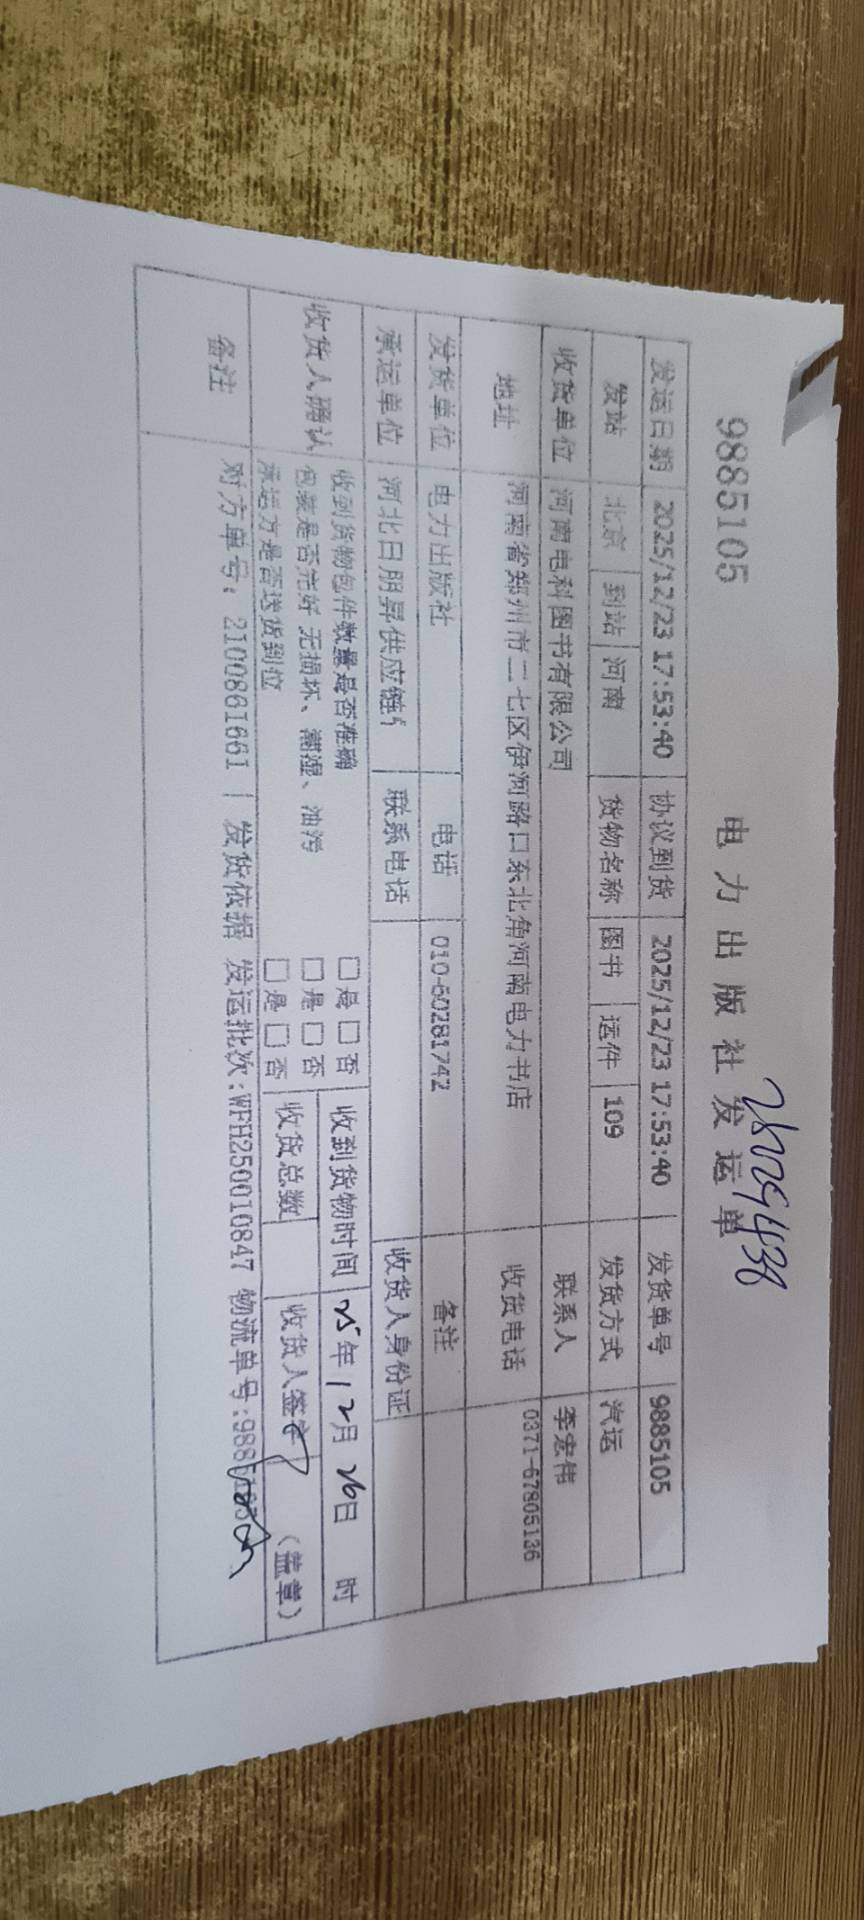 9885105 电力出版社发运单
发运日期 2025/12/23 17:53:40 协议到货 2025/12/23 17:53:40 发货单号 9885105
发站 北京 到站 河南 货物名称 图书 运件 109 发货方式 汽运
收货单位 河南电科图书有限公司 联系人 李宏伟
地址 河南省郑州市二七区伊河路口东北角河南电力书店 收货电话 0371-67805136
发货单位 电力出版社 电话 010-60281742 备注
承运单位 河北日朋昇供应链 联系电话 收货人身份证
收货人确认 收到货物包件数量是否准确 □是□否 收到货物时间 25年12月26日 时
包装是否完好 无损坏、潮湿、油污 □是□否
承运方是否送货到位 □是□否 收货总数 收货人签字 (盖章)
备注 对方单号:2100861661 | 发货依据 发运批次:WFH250010847 物流单号:9885105